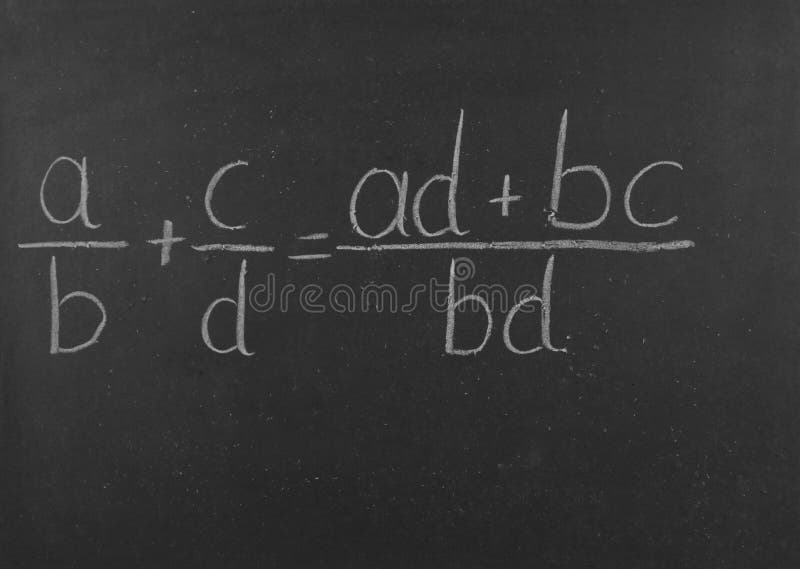 a/b + c/d = (ad + bc)/bd
dreamstime